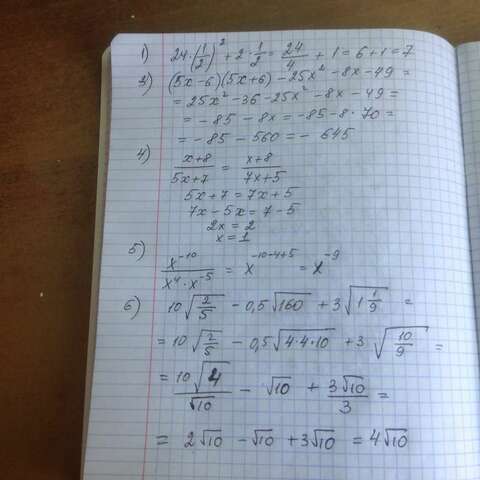 1) 24·(1/2)² + 2·1/2 = 24/4 + 1 = 6+1 = 7
3) (5x-6)(5x+6) - 25x² - 8x - 49 =
= 25x² - 36 - 25x² - 8x - 49 =
= -85 - 8x = -85 - 8·70 =
= -85 - 560 = - 645
4) (x+8)/(5x+7) = (x+8)/(7x+5)
5x+7 = 7x+5
7x-5x = 7-5
2x = 2
x = 1
5) x⁻¹⁰/(x⁴·x⁻⁵) = x⁻¹⁰⁻⁴⁺⁵ = x⁻⁹
6) 10√(2/5) - 0,5√160 + 3√(1 1/9) =
= 10√(2/5) - 0,5√(4·4·10) + 3√(10/9) =
= 10√4/√10 - √10 + 3√10/3 =
= 2√10 - √10 + 3√10 = 4√10